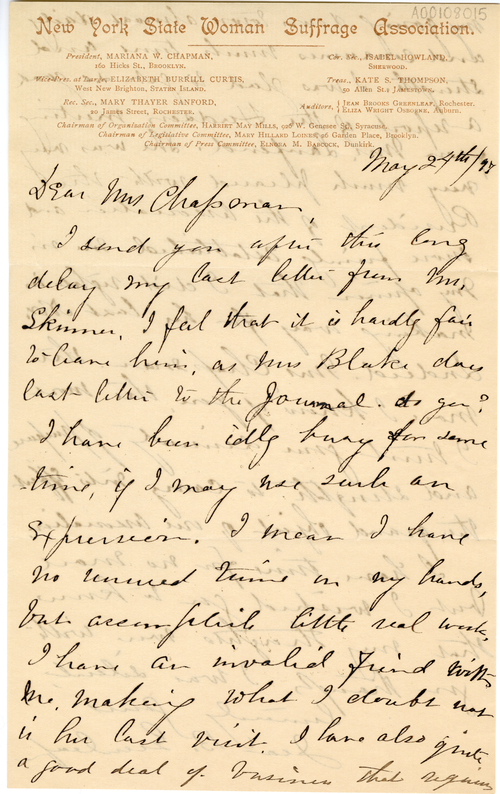 A00108015
New York State Woman Suffrage Association.
President, MARIANA W. CHAPMAN,
160 Hicks St., BROOKLYN.
Vice-Pres. at Large, ELIZABETH BURRILL CURTIS,
West New Brighton, STATEN ISLAND.
Rec. Sec., MARY THAYER SANFORD,
James Street, ROCHESTER.
Cor. Sec., ISABEL HOWLAND,
SHERWOOD.
Treas., KATE S. THOMPSON,
50 Allen St., JAMESTOWN.
Auditors, JEAN BROOKS GREENLEAF, Rochester.
ELIZA WRIGHT OSBORNE, Auburn.
Chairman of Organization Committee, HARRIET MAY MILLS, W. Genesee St., Syracuse.
Chairman of Legislative Committee, MARY HILLARD LOINES, Garden Place, Brooklyn.
Chairman of Press Committee, ELNORA M. BABCOCK, Dunkirk.
May 24th/98
Dear Mrs. Chapman,
I send you after this long
delay my last letter from Mr.
Skinner. I feel that it is hardly fair
to leave him, as Mrs Blake does
last letter to the Journal. do you?
I have been idly busy for some
time, if I may use such an
expression. I mean I have
no unused time on my hands,
but accomplish little real work.
I have an invalid friend with
me, making what I doubt not
is her last visit. I have also quite
a good deal of business that requires